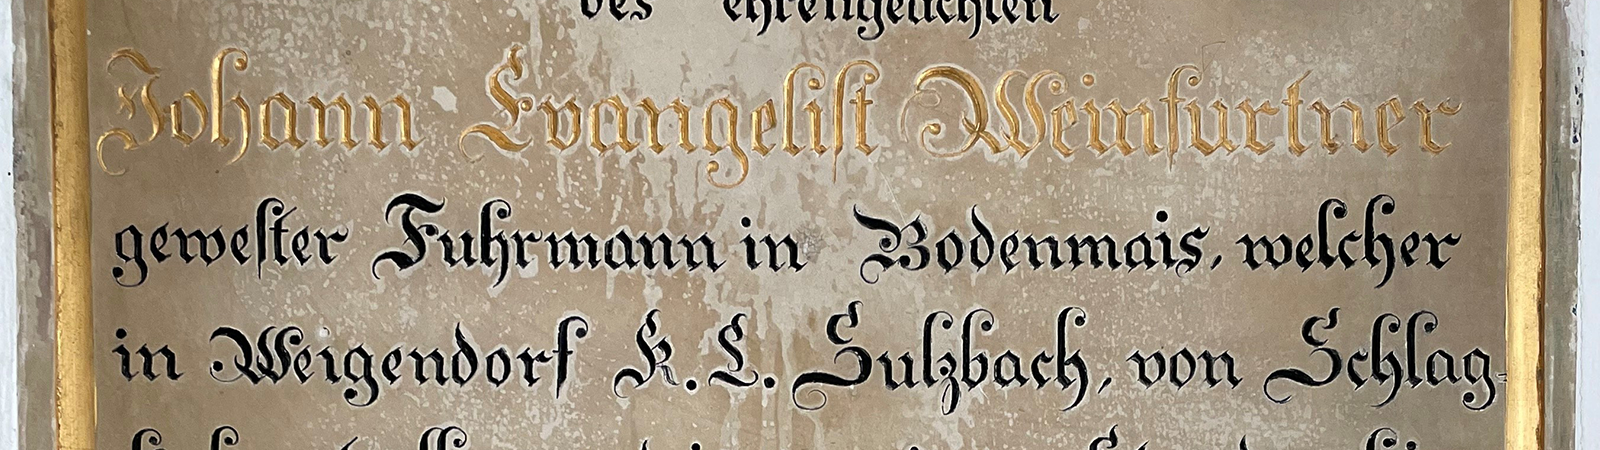 des ehrengeachten
Johann Evangelist Weinfurtner
gewester Fuhrmann in Bodenmais, welcher
in Weigendorf K. L. Sulzbach, von Schlag-